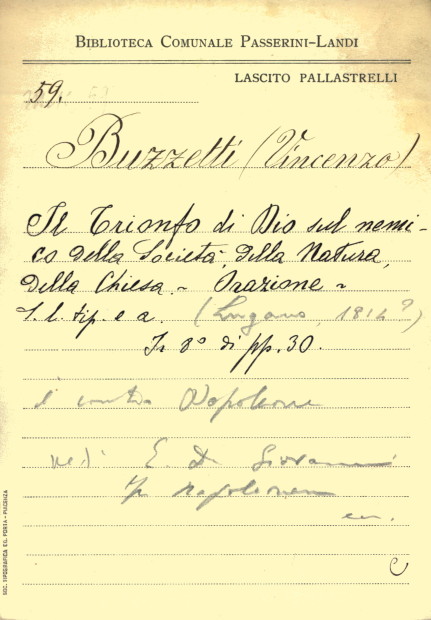 BIBLIOTECA COMUNALE PASSERINI-LANDI
LASCITO PALLASTRELLI
59.
Buzzetti (Vincenzo)
Il Trionfo di Dio sul nemi-
co della Società, della Natura,
della Chiesa - Orazione -
S. l. tip. e a. (Lugano, 1814?)
In 8° di pp. 30.
è contro Napoleone
vedi E. D. Giovanni
Napoleone
ecc.
C
SOC. TIPOGRAFICA ED. PORTA - PIACENZA